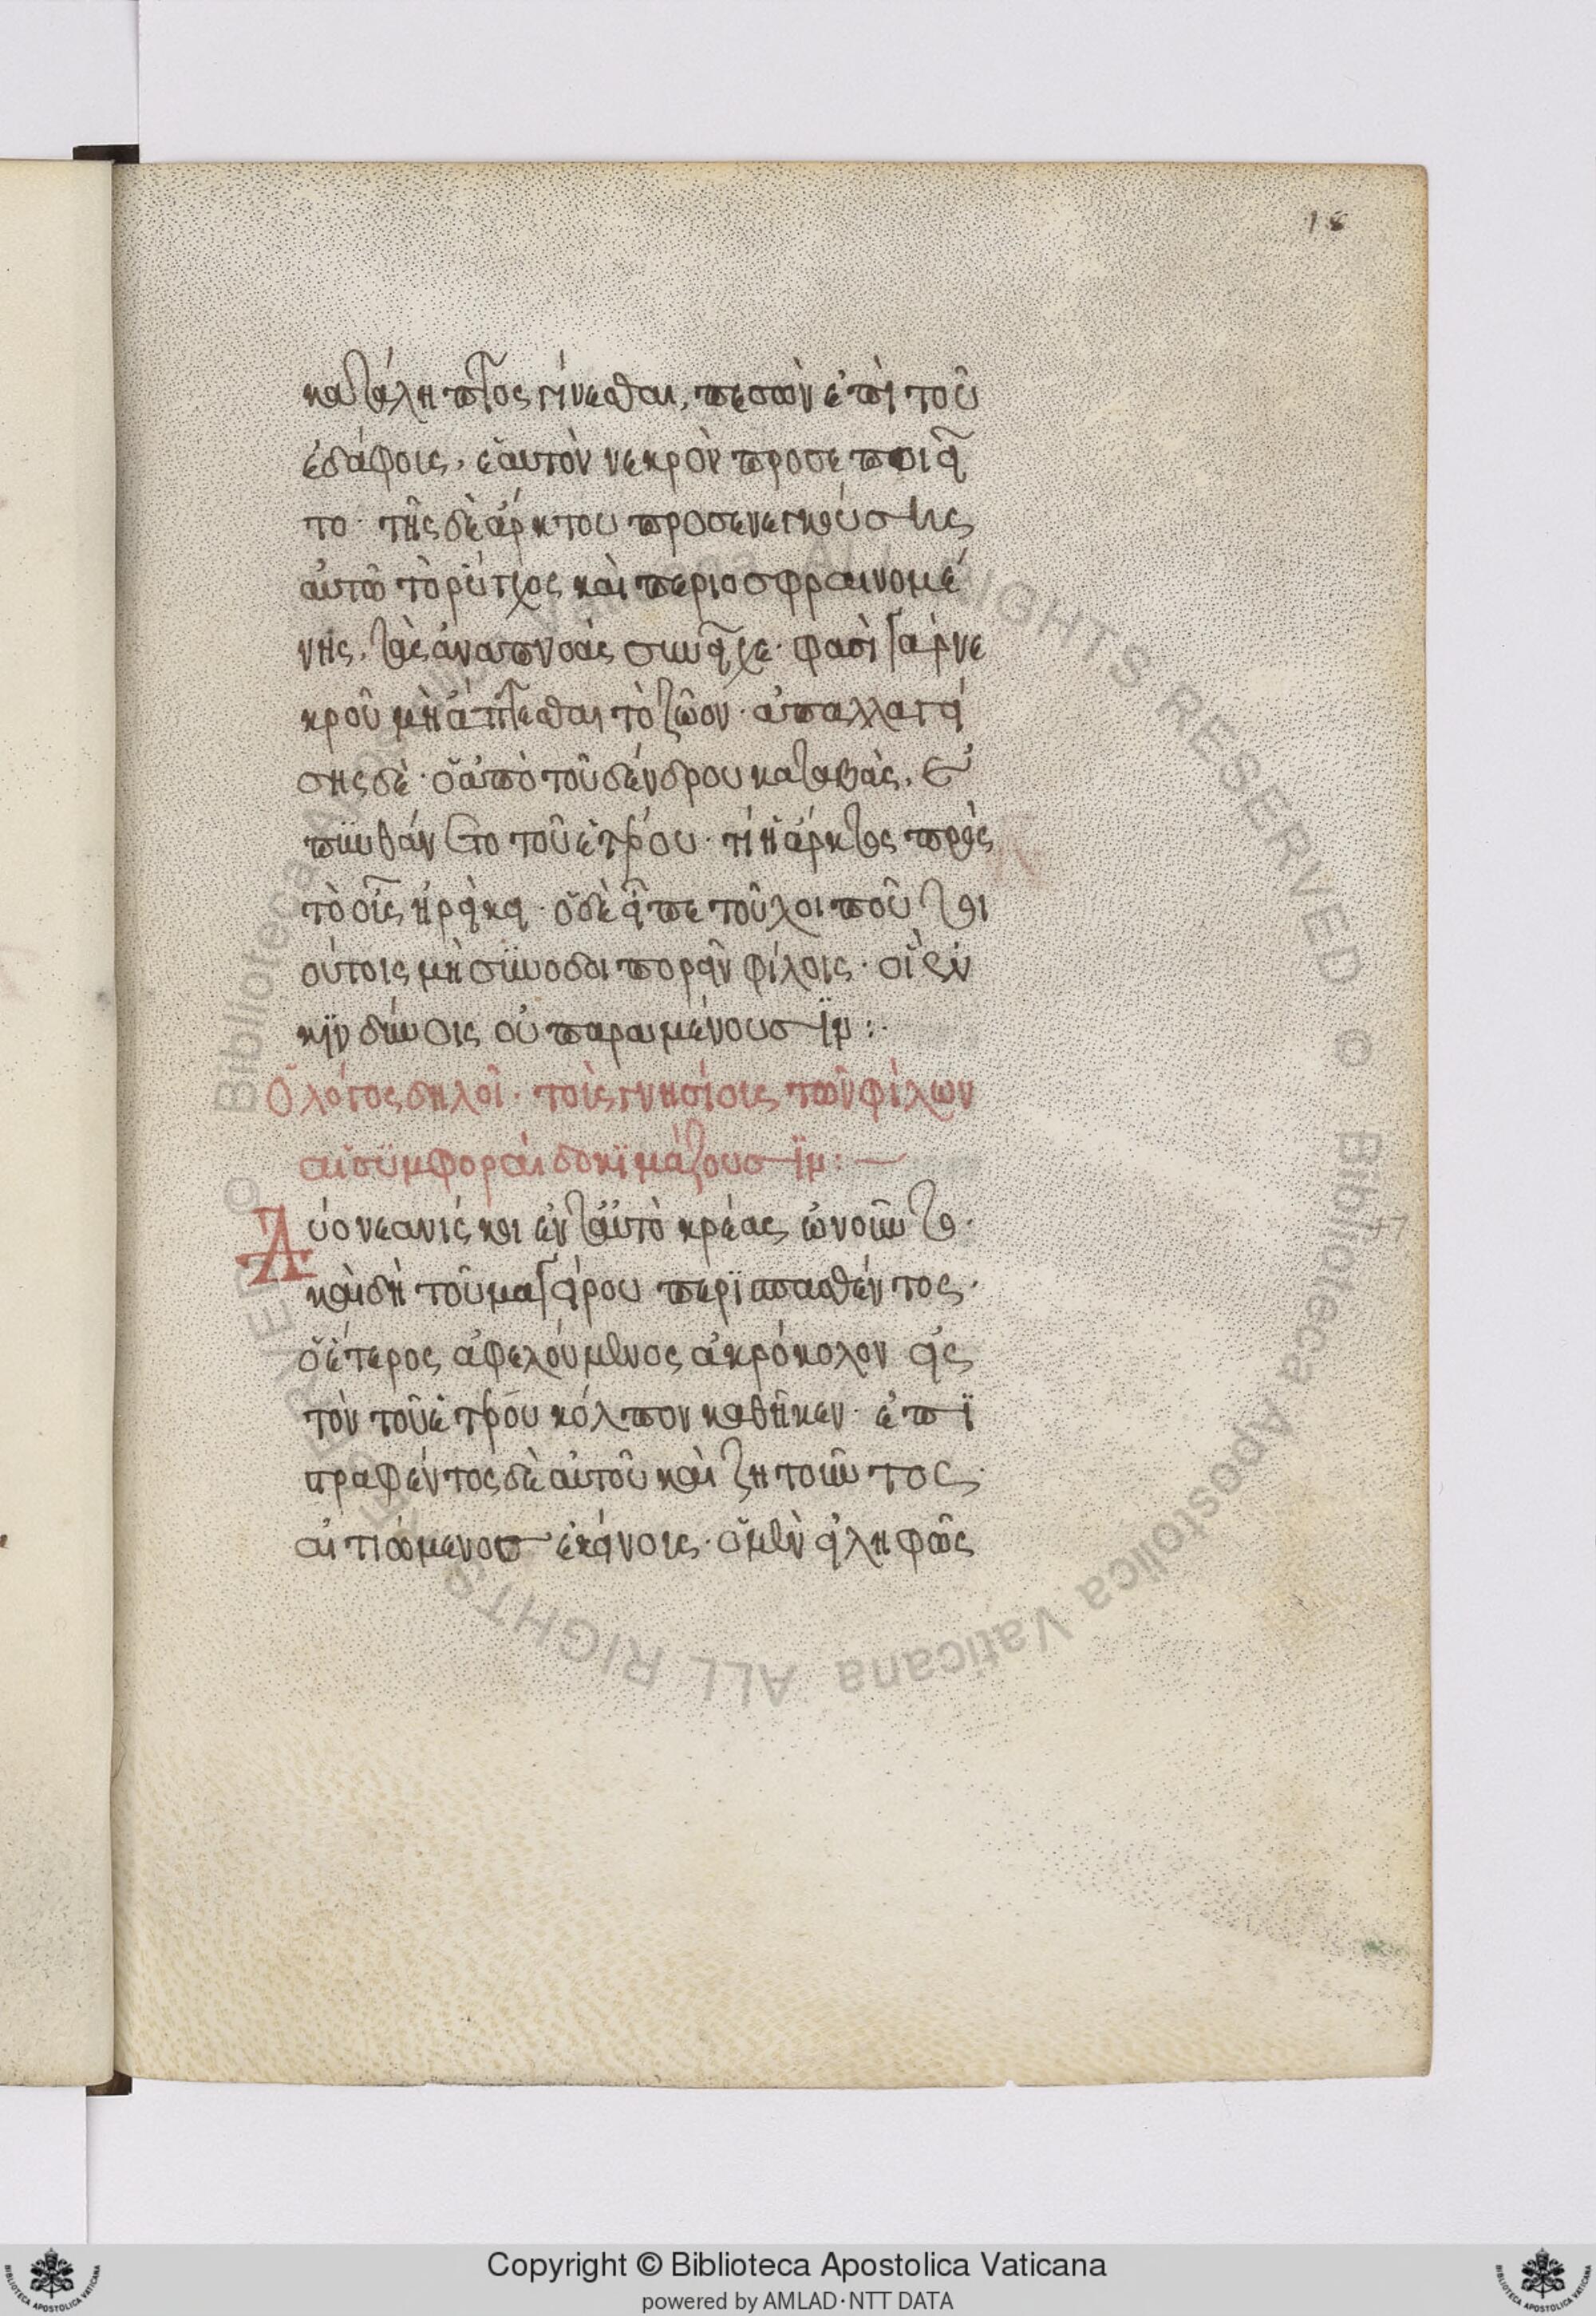 18
κατάληπτος γίνεσθαι, πεσὼν ἐπὶ τοῦ
ἐδάφους, ἑαυτὸν νεκρὸν προσεποιεῖ
το· τῆς δὲ ἄρκτου προσενεγκούσης
αὐτῶ τὸ ῥύγχος καὶ περιοσφραινομέ
νης, τὰς ἀναπνοὰς συνεῖχε· φασὶ γὰρ νε
κροῦ μὴ ἅπτεσθαι τὸ ζῶον· ἀπαλλαγεί
σης δὲ· ὁ ἀπὸ τοῦ δένδρου καταβὰς, ἐ
πυνθάνετο τοῦ ἑτέρου· τί ἡ ἄρκτος πρὸς
τὸ οὖς εἰρήκει· ὁ δὲ εἶπε τοῦ λοιποῦ τοι
ούτοις μὴ συνοδοιπορεῖν φίλοις· οἳ ἐν
κινδύνοις οὐ παραμένουσιν:·
Ὁ λόγος δηλοῖ· τοὺς γνησίους τῶν φίλων
αἱ συμφοραὶ δοκιμάζουσιν:—
Δύο νεανίσκοι ἐν ταὐτὸ κρέας ὠνοῦντο·
καὶ δὴ τοῦ μαγείρου περισπασθέντος·
ὁ ἕτερος ἀφελόμενος ἀκρόκολον εἰς
τὸν τοῦ ἑτέρου κόλπον καθῆκεν· ἐπι
στραφέντος δὲ αὐτοῦ καὶ ζητοῦντος·
αἰτιώμενος ἐκείνους· ὁ μὲν εἰληφὼς
47
Copyright © Biblioteca Apostolica Vaticana
powered by AMLAD·NTT DATA